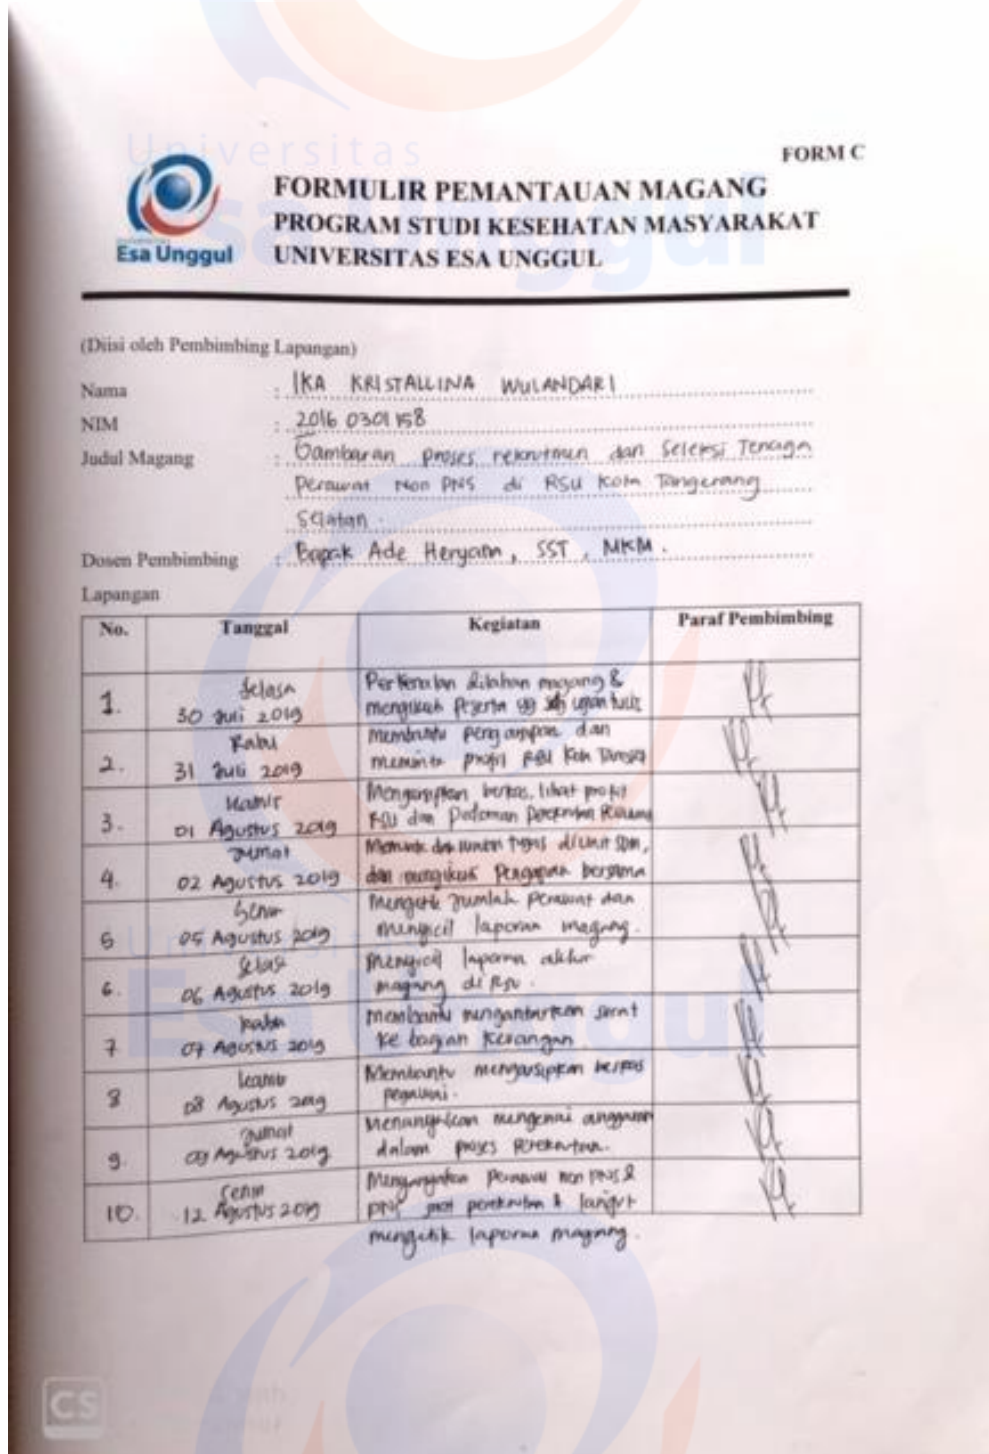 Universitas
Esa Unggul
FORM C
FORMULIR PEMANTAUAN MAGANG
PROGRAM STUDI KESEHATAN MASYARAKAT
UNIVERSITAS ESA UNGGUL
Esa Unggul
(Diisi oleh Pembimbing Lapangan)
Nama : IKA KRISTALLINA WULANDARI
NIM : 2016 0301 158
Judul Magang : Gambaran proses rekrutmen dan Seleksi Tenaga
Perawat Non PNS di RSU Kota Tangerang
Selatan.
Dosen Pembimbing : Bapak Ade Heryana, SST, MKM.
Lapangan
No. Tanggal Kegiatan Paraf Pembimbing
1. Selasa
30 Juli 2019
Perkenalan dilahan magang &
peserta yg ujian tulis
2. Rabu
31 Juli 2019
membantu dan
meminta profil Kota
3. Kamis
01 Agustus 2019
Mengarsipkan berkas, lihat profil
RSU dan Pedoman
4. Jumat
02 Agustus 2019
tugas di unit SDM,
dan mengikuti bersama
5 Senin
05 Agustus 2019
Mengetik Jumlah perawat dan
menyicil laporan magang.
6. Selasa
06 Agustus 2019
Menyicil laporan akhir
magang di RSU.
7 Rabu
07 Agustus 2019
membantu mengantarkan surat
ke bagian keuangan
8 Kamis
08 Agustus 2019
Membantu mengarsipkan berkas
pegawai.
9. Jumat
09 Agustus 2019
Menanyakan mengenai anggaran
dalam proses
10. Senin
12 Agustus 2019
perawat non PNS &
PNS & lanjut
mengetik laporan magang.
Universitas
Esa Unggul
CS